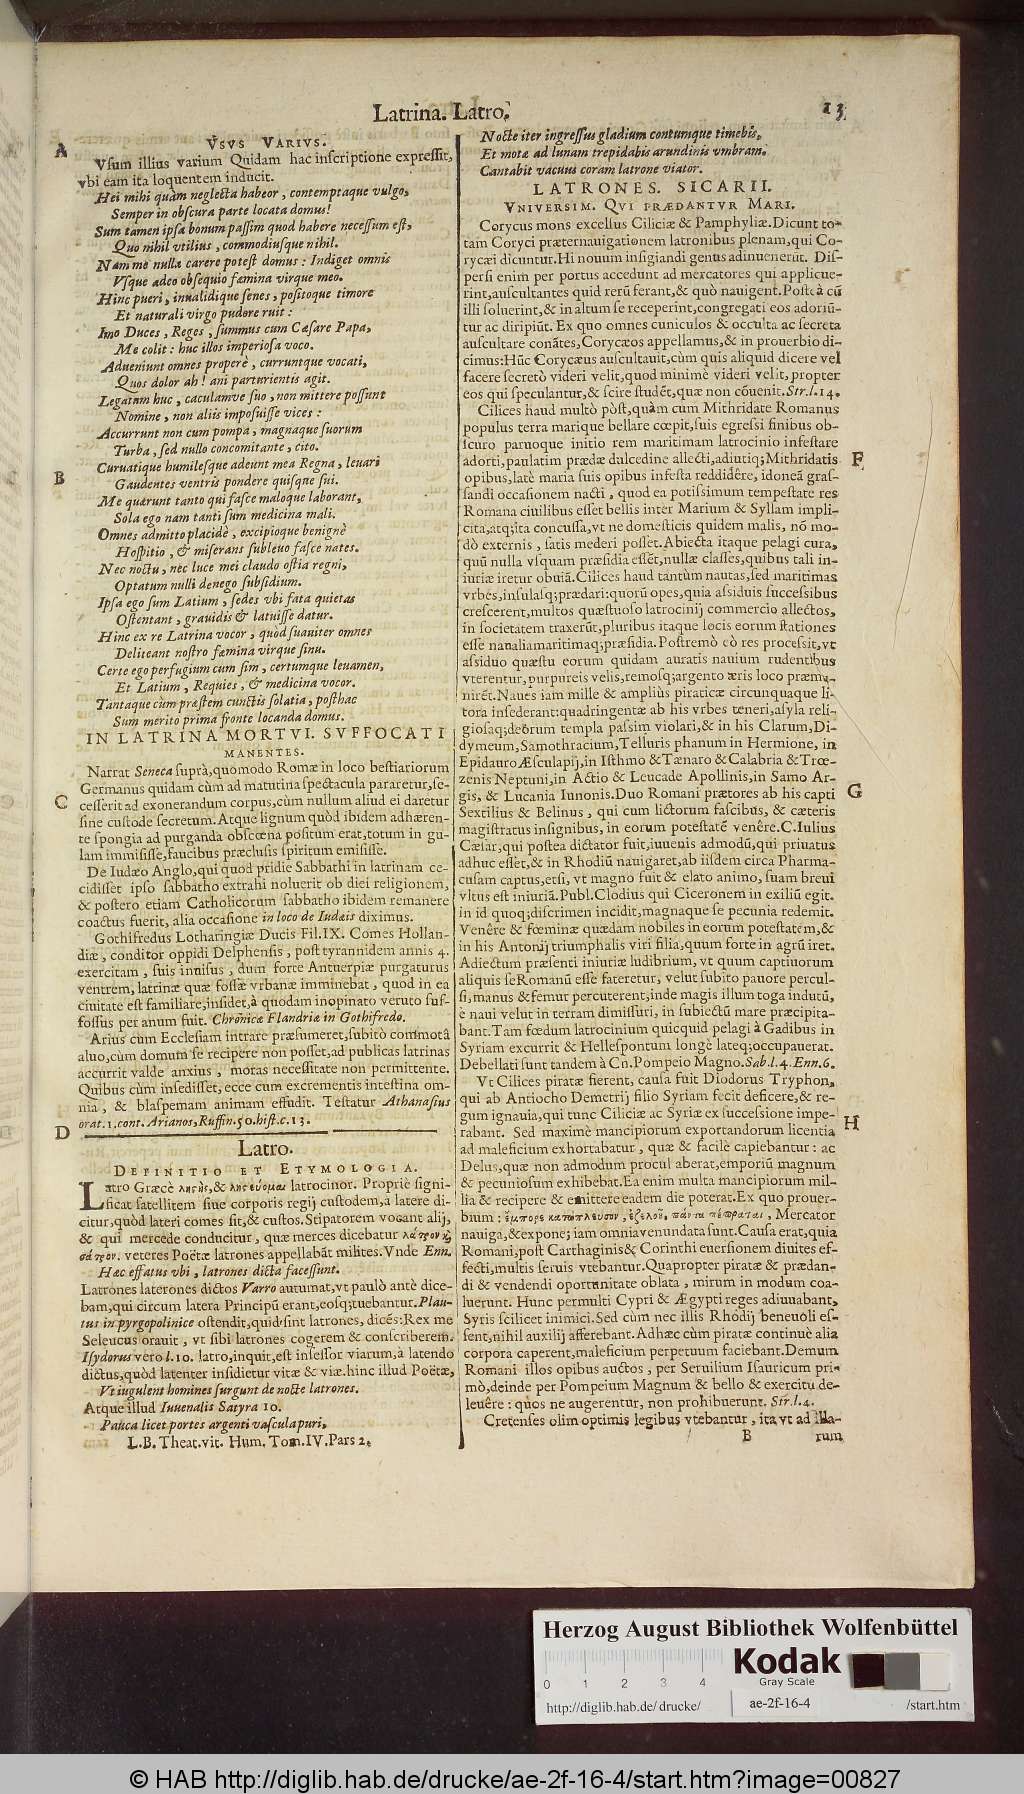 Latrina. Latro.
13
A
VSVS VARIVS.
Vsum illius varium Quidam hac inscriptione expressit,
vbi eam ita loquentem inducit.
Hei mihi quàm neglecta habeor, contemptaque vulgo,
Semper in obscura parte locata domus!
Sum tamen ipsa bonum passim quod habere necessum est,
Quo nihil vtilius, commodiusque nihil.
Nam me nulla carere potest domus: Indiget omnis
Vsque adeo obsequio fœmina virque meo.
Hinc pueri, inualidique senes, positoque timore
Et naturali virgo pudore ruit:
Imo Duces, Reges, summus cum Cæsare Papa,
Me colit: huc illos imperiosa voco.
Adueniunt omnes properè, curruntque vocati,
Quos dolor ah! ani parturientis agit.
Legatum huc, caculamve suo, non mittere possunt
Nomine, non aliis imposuisse vices:
Accurrunt non cum pompa, magnaque suorum
Turba, sed nullo concomitante, cito.
Curuatique humilesque adeunt mea Regna, leuari
B
Gaudentes ventris pondere quisque sui.
Me quærunt tanto qui fasce maloque laborant,
Sola ego nam tanti sum medicina mali.
Omnes admitto placidè, excipioque benignè
Hospitio, & miserans subleuo fasce nates.
Nec noctu, nec luce mei claudo ostia regni,
Optatum nulli denego subsidium.
Ipsa ego sum Latium, sedes vbi fata quietas
Ostentant, grauidis & latuisse datur.
Hinc ex re Latrina vocor, quòd suauiter omnes
Deliteant nostro fœmina virque sinu.
Certe ego perfugium cum sim, certumque leuamen,
Et Latium, Requies, & medicina vocor.
Tantaque cùm præstem cunctis solatia, posthac
Sum merito prima fronte locanda domus.
IN LATRINA MORTVI. SVFFOCATI
MANENTES.
Narrat Seneca suprà, quomodo Romæ in loco bestiariorum
Germanus quidam cùm ad matutina spectacula pararetur, se-
C
cesserit ad exonerandum corpus, cùm nullum aliud ei daretur
sine custode secretum. Atque lignum quòd ibidem adhæren-
te spongia ad purganda obscœna positum erat, totum in gu-
lam immisisse, faucibus præclusis spiritum emisisse.
De Iudæo Anglo, qui quod pridie Sabbathi in latrinam ce-
cidisset ipso sabbatho extrahi noluerit ob diei religionem,
& postero etiam Catholicorum sabbatho ibidem remanere
coactus fuerit, alia occasione in loco de Iudæis diximus.
Gothifredus Lotharingiæ Ducis Fil. IX. Comes Hollan-
diæ, conditor oppidi Delphensis, post tyrannidem annis 4.
exercitam, suis inuisus, dum forte Antuerpiæ purgaturus
ventrem, latrinæ quæ fossæ vrbanæ imminebat, quod in ea
ciuitate est familiare, insidet, à quodam inopinato veruto suf-
fossus per anum fuit. Chronicæ Flandriæ in Gothifredo.
Arius cum Ecclesiam intrare præsumeret, subitò commotâ
aluo, cùm domum se recipere non posset, ad publicas latrinas
accurrit valde anxius, moras necessitate non permittente.
Quibus cùm insedisset, ecce cum excrementis intestina om-
nia, & blasphemam animam effudit. Testatur Athanasius
orat. 1. cont. Arianos, Ruffin. 50. hist. c. 13.
D
Latro.
DEFINITIO ET ETYMOLOGIA.
Latro Græcè λῃςὴς, & λῃςεύομαι latrocinor. Propriè signi-
ficat satellitem siue corporis regij custodem, à latere di-
citur, quòd lateri comes sit, & custos. Stipatorem vocant alij,
& qui mercede conducitur, quæ merces dicebatur λάτρον
veteres Poëtæ latrones appellabāt milites. Vnde Enn.
Hæc effatus vbi, latrones dicta facessunt.
Latrones laterones dictos Varro autumat, vt paulò antè dice-
bam, qui circum latera Principū erant, eosq; tuebantur. Plau-
tus in pyrgopolinice ostendit, quid sint latrones, dicēs: Rex me
Seleucus orauit, vt sibi latrones cogerem & conscriberem.
Isydorus vero l. 10. latro, inquit, est insessor viarum, à latendo
dictus, quòd latenter insidietur vitæ & viæ. hinc illud Poëtæ,
Vt iugulent homines surgunt de nocte latrones.
Atque illud Iuuenalis Satyra 10.
Pauca licet portes argenti vascula puri,
L.B. Theat. vit. Hum. Tom. IV. Pars 2.
Nocte iter ingressus gladium contumque timebis,
Et motæ ad lunam trepidabis arundinis vmbram.
Cantabit vacuus coram latrone viator.
LATRONES. SICARII.
VNIVERSIM. QVI PRÆDANTVR MARI.
Corycus mons excelsus Ciliciæ & Pamphyliæ. Dicunt to-
tam Coryci præternauigationem latronibus plenam, qui Co-
rycæi dicuntur. Hi nouum insigiandi genus adinuenerūt. Dis-
persi enim per portus accedunt ad mercatores qui applicue-
rint, auscultantes quid rerū ferant, & quò nauigent. Postè à cū
illi soluerint, & in altum se receperint, congregati eos adoriū-
tur ac diripiūt. Ex quo omnes cuniculos & occulta ac secreta
auscultare conātes, Corycæos appellamus, & in prouerbio di-
cimus: Hūc Corycæus auscultauit, cùm quis aliquid dicere vel
facere secretò videri velit, quod minimè videri velit, propter
eos qui speculantur, & scire studēt, quæ non cōuenit. Str. l. 14.
Cilices haud multò pòst, quàm cum Mithridate Romanus
populus terra marique bellare cœpit, suis egressi finibus ob-
scuro paruoque initio rem maritimam latrocinio infestare
adorti, paulatim prædæ dulcedine allecti, adiutiq; Mithridatis
F
opibus, latè maria suis opibus infesta reddidêre, idoneā gras-
sandi occasionem nacti, quod ea potissimum tempestate res
Romana ciuilibus esset bellis inter Marium & Syllam impli-
cita, atq; ita concussa, vt ne domesticis quidem malis, nō mo-
dò externis, satis mederi posset. Abiecta itaque pelagi cura,
quū nulla vsquam præsidia essēt, nullæ classes, quibus tali in-
iuriæ iretur obuiā. Cilices haud tantùm nautas, sed maritimas
vrbes, insulasq; prædari: quorū opes, quia assiduis successibus
crescerent, multos quæstuoso latrocinij commercio allectos,
in societatem traxerūt, pluribus itaque locis eorum stationes
esse naualia maritimaq; præsidia. Postremò eò res processit, vt
assiduo quæstu eorum quidam auratis nauium rudentibus
vterentur, purpureis velis, remosq; argento æris loco præmu-
nirēt. Naues iam mille & ampliùs piraticæ circunquaque li-
tora insederant: quadringentæ ab his vrbes teneri, asyla reli-
giosaq; deorum templa passim violari, & in his Clarum, Di-
dymeum, Samothracium, Telluris phanum in Hermione, in
Epidauro Æsculapij, in Isthmo & Tænaro & Calabria & Trœ-
zenis Neptuni, in Actio & Leucade Apollinis, in Samo Ar-
gis, & Lucania Iunonis. Duo Romani prætores ab his capti
G
Sextilius & Belinus, qui cum lictorum fascibus, & cæteris
magistratus insignibus, in eorum potestatē venêre. C. Iulius
Cæsar, qui postea dictator fuit, iuuenis admodū, qui priuatus
adhuc esset, & in Rhodiū nauigaret, ab iisdem circa Pharma-
cusam captus, etsi, vt magno fuit & elato animo, suam breui
vltus est iniuriā. Publ. Clodius qui Ciceronem in exiliū egit.
in id quoq; discrimen incidit, magnaque se pecunia redemit.
Venêre & fœminæ quædam nobiles in eorum potestatem, &
in his Antonij triumphalis viri filia, quum forte in agrū iret.
Adiectum præsenti iniuriæ ludibrium, vt quum captiuorum
aliquis se Romanū esse fateretur, velut subito pauore percul-
si, manus & femur percuterent, inde magis illum toga indutū,
è naui velut in terram dimissuri, in subiectū mare præcipita-
bant. Tam fœdum latrocinium quicquid pelagi à Gadibus in
Syriam excurrit & Hellespontum longè lateq; occupauerat.
Debellati sunt tandem à Cn. Pompeio Magno. Sab. l. 4. Enn. 6.
Vt Cilices piratæ fierent, causa fuit Diodorus Tryphon,
qui ab Antiocho Demetrij filio Syriam fecit deficere, & re-
gum ignauia, qui tunc Ciliciæ ac Syriæ ex successione impe-
H
rabant. Sed maximè mancipiorum exportandorum licentia
ad maleficium exhortabatur, quæ & facilè capiebantur: ac
Delus, quæ non admodum procul aberat, emporiū magnum
& pecuniosum exhibebat. Ea enim multa mancipiorum mil-
lia & recipere & emittere eadem die poterat. Ex quo prouer-
bium: ἔμπορε κατάπλευσον, ἐξελοῦ, πάντα πέπραται, Mercator
nauiga, & expone; iam omnia venundata sunt. Causa erat, quia
Romani, post Carthaginis & Corinthi euersionem diuites ef-
fecti, multis seruis vtebantur. Quapropter piratæ & prædan-
di & vendendi oportunitate oblata, mirum in modum coa-
luerunt. Hunc permulti Cypri & Ægypti reges adiuuabant,
Syris scilicet inimici. Sed cùm nec illis Rhodij beneuoli es-
sent, nihil auxilij afferebant. Adhæc cùm piratæ continuè alia
corpora caperent, maleficium perpetuum faciebant. Demum
Romani illos opibus auctos, per Seruilium Isauricum pri-
mò, deinde per Pompeium Magnum & bello & exercitu de-
leuêre: quos ne augerentur, non prohibuerunt. Str. l. 4.
Cretenses olim optimis legibus vtebantur, ita vt ad illa-
B
rum
Herzog August Bibliothek Wolfenbüttel
0 1 2 3 4
Kodak
Gray Scale
http://diglib.hab.de/drucke/
ae-2f-16-4
/start.htm
© HAB http://diglib.hab.de/drucke/ae-2f-16-4/start.htm?image=00827